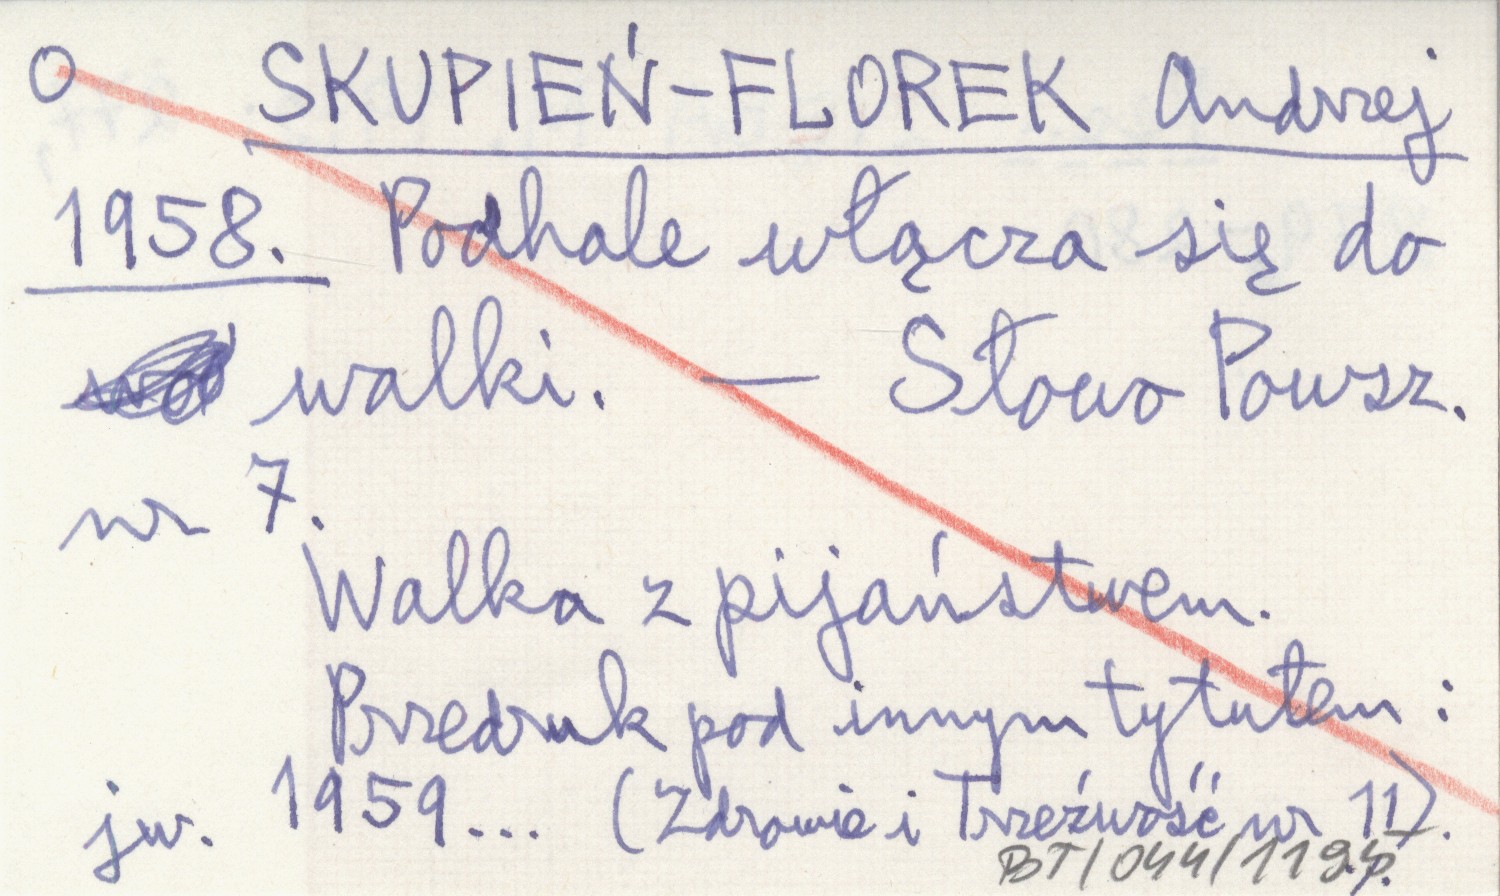 O SKUPIEŃ-FLOREK Andrzej
1958. Podhale włącza się do
walki. — Słowo Powsz.
nr 7.
Walka z pijaństwem.
Przedruk pod innym tytułem:
jw. 1959... (Zdrowie i Trzeźwość nr 11).
BT/044/119